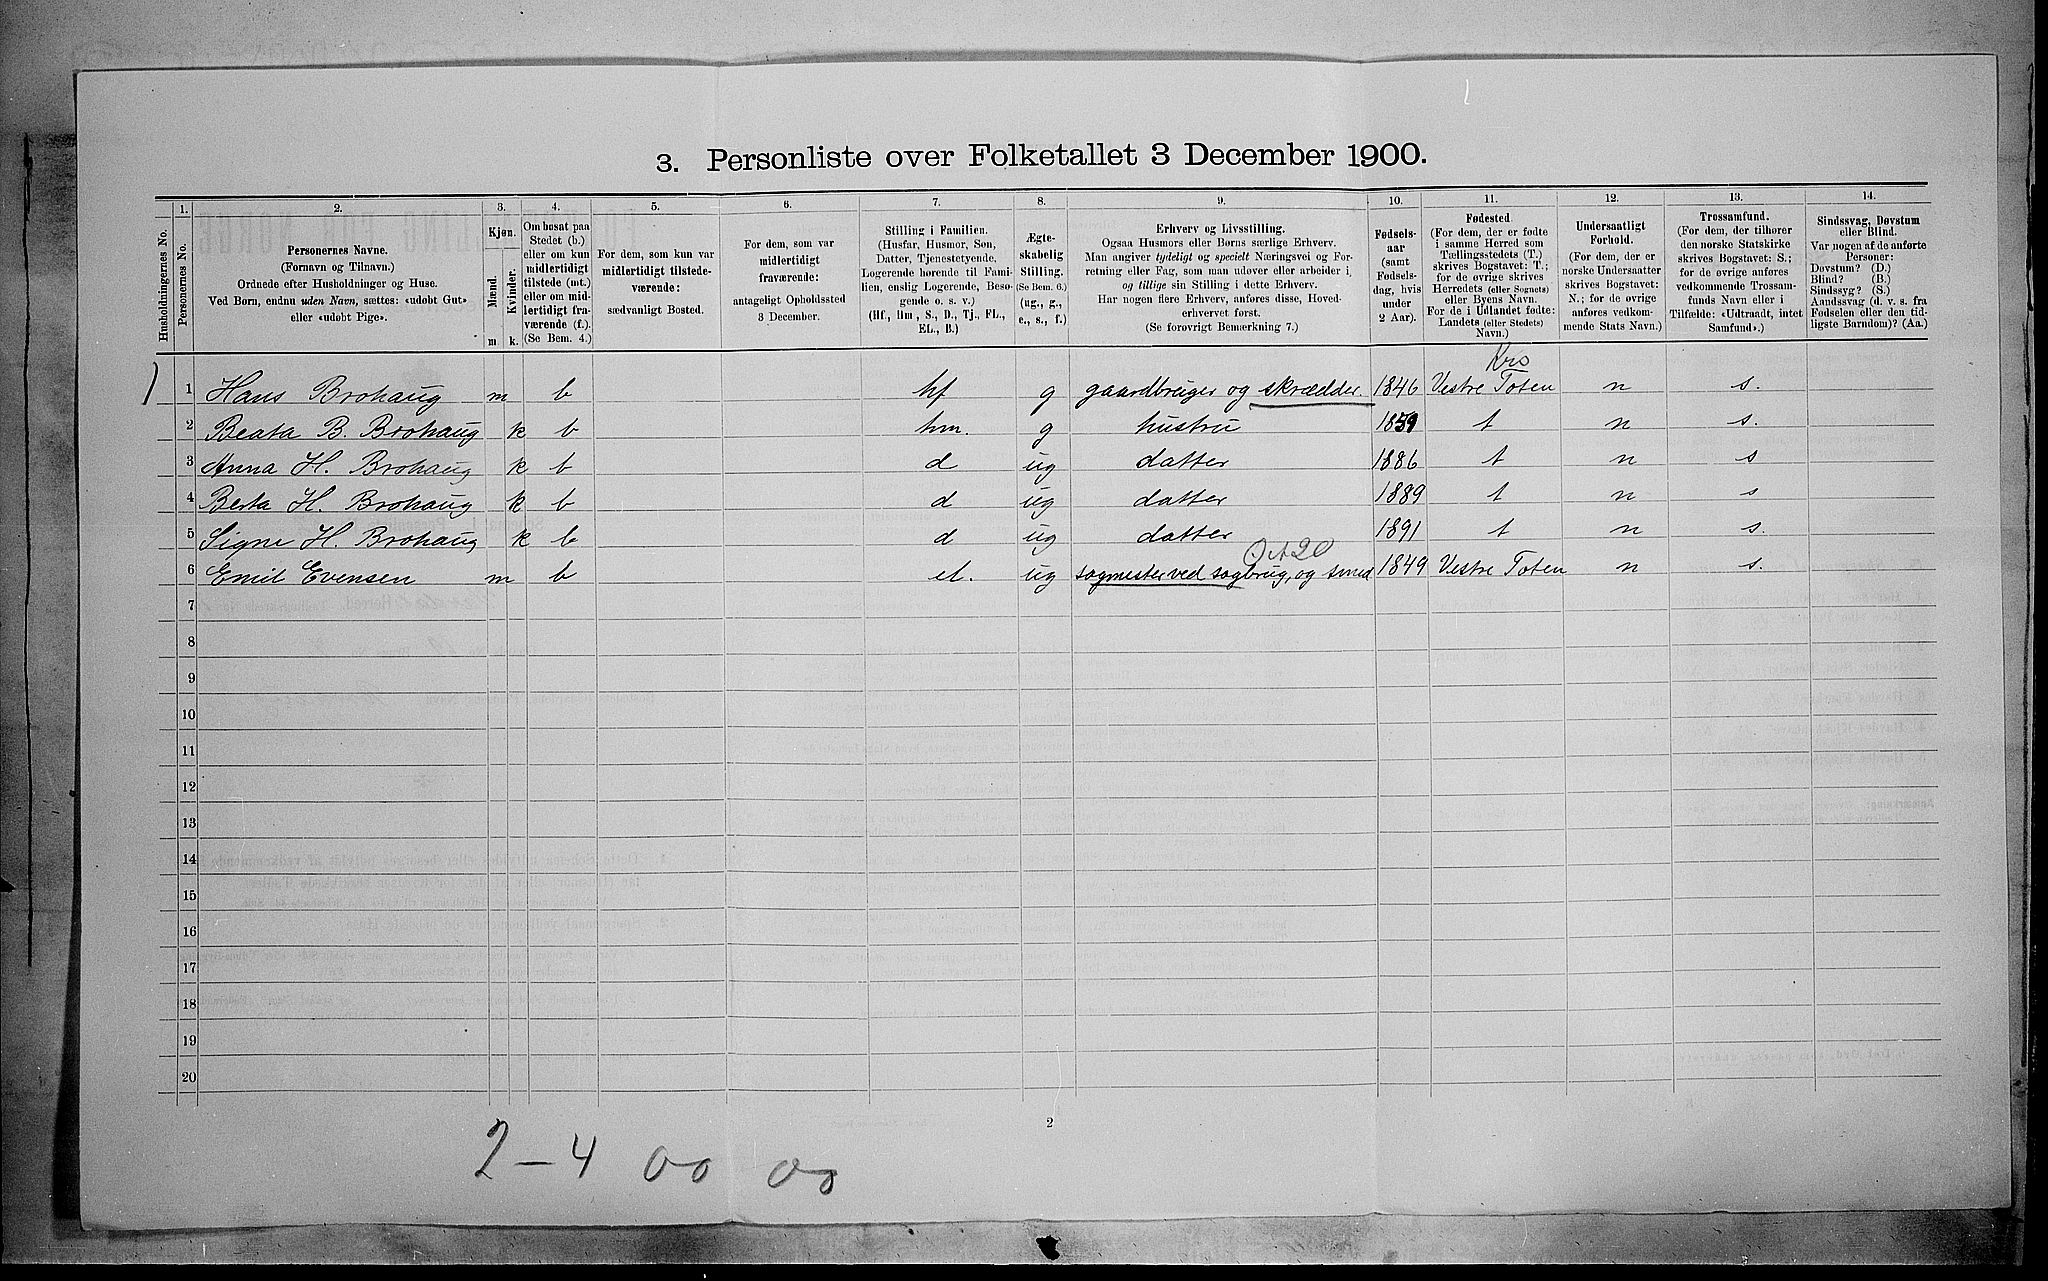 3. Personliste over Folketallet 3 December 1900.
1. 2. 3. 4. 5. 6. 7. 8. 9. 10. 11. 12. 13. 14.
Husholdningernes No.
Personernes No.
Personernes Navne.
(Fornavn og Tilnavn.)
Ordnede efter Husholdninger og Huse.
Ved Børn, endnu uden Navn, sættes: «udøbt Gut»
eller «udøbt Pige».
Kjøn.
Mænd.
Kvinder.
m k.
Om bosat paa
Stedet (b.)
eller om kun
midlertidigt
tilstede (mt.)
eller om mid-
lertidigt fra-
værende (f.)
(Se Bem. 4.)
For dem, som kun var
midlertidigt tilstede-
værende:
sædvanligt Bosted.
For dem, som var
midlertidigt
fraværende:
antageligt Opholdssted
3 December.
Stilling i Familien.
(Husfar, Husmor, Søn,
Datter, Tjenestetyende,
Logerende hørende til Fami-
lien, enslig Logerende, Besø-
gende o. s. v.)
(Hf., Hm., S., D., Tj., FL.,
EL., B.)
Ægte-
skabelig
Stilling.
(Se Bem. 6.)
(ug., g.,
e., s., f.)
Erhverv og Livsstilling.
Ogsaa Husmors eller Børns særlige Erhverv.
Man angiver tydeligt og specielt Næringsvei og For-
retning eller Fag, som man udøver eller arbeider i,
og tillige sin Stilling i dette Erhverv.
Har nogen flere Erhverv, anføres disse, Hoved-
erhvervet først.
(Se forøvrigt Bemærkning 7.)
Fødsels-
aar
(samt
Fødsels-
dag, hvis
under
2 Aar).
Fødested
(For dem, der er fødte
i samme Herred som
Tællingsstedets (T.)
skrives Bogstavet: T.;
for de øvrige skrives
Herredets (eller Sognets)
eller Byens Navn.
For de i Udlandet fødte:
Landets (eller Stedets)
Navn.)
Undersaatligt
Forhold.
(For dem, der er
norske Undersaatter
skrives Bogstavet:
N.; for de øvrige
anføres vedkom-
mende Stats Navn.)
Trossamfund.
(For dem, der tilhører
den norske Statskirke
skrives Bogstavet: S.;
for de øvrige anføres
vedkommende Trossam-
funds Navn eller i
Tilfælde: «Udtraadt, intet
Samfund.»)
Sindssvag, Døvstum
eller Blind.
Var nogen af de anførte
Personer:
Døvstum? (D.)
Blind? (B.)
Sindssyg? (S.)
Aandssvag (d. v. s. fra
Fødselen eller den tid-
ligste Barndom)? (Aa.)
1 Hans Brohaug m b hf g gaardbruger og skrædder. 1846 Vestre Toten n s.
2 Beata B. Brohaug k b hm. g hustru 1859 t n s.
3 Anna H. Brohaug k b d ug datter 1886 t n s
4 Berta H. Brohaug k b d ug datter 1889 t n s
5 Signe H. Brohaug k b d ug datter 1891 t n s.
6 Emil Evensen m b el. ug sagmester ved sagbrug, og smed 1849 Vestre Toten n s.
7
8
9
10
11
12
13
14
15
16
17
18
19
20
2
2-4 00 00